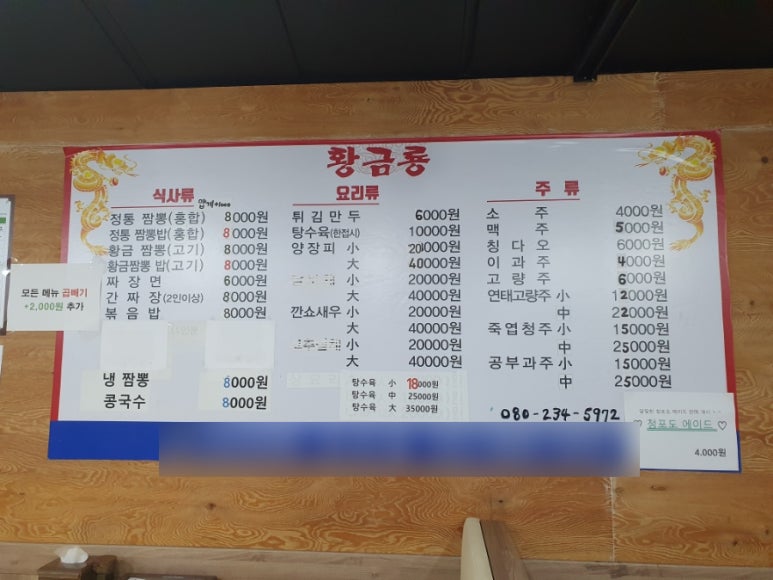 황금룡
식사류
정통 짬뽕(홍합) 8000원
정통 짬뽕밥(홍합) 8000원
황금 짬뽕(고기) 8000원
황금짬뽕 밥(고기) 8000원
짜장면 6000원
간짜장(2인이상) 8000원
볶음밥 8000원
냉짬뽕 8000원
콩국수 8000원
모든 메뉴 곱빼기
+2,000원 추가
요리류
튀김만두 6000원
탕수육(한접시) 10000원
양장피 小 20000원
大 40000원
小 20000원
大 40000원
깐쇼새우 小 20000원
大 40000원
小 20000원
大 40000원
탕수육 小 18000원
탕수육 中 25000원
탕수육 大 35000원
주류
소주 4000원
맥주 5000원
칭다오 6000원
이과주 4000원
고량주 6000원
연태고량주 小 12000원
中 22000원
죽엽청주 小 15000원
中 25000원
공부과주 小 15000원
中 25000원
080-234-5972
♡ 청포도 에이드 ♡
4.000원